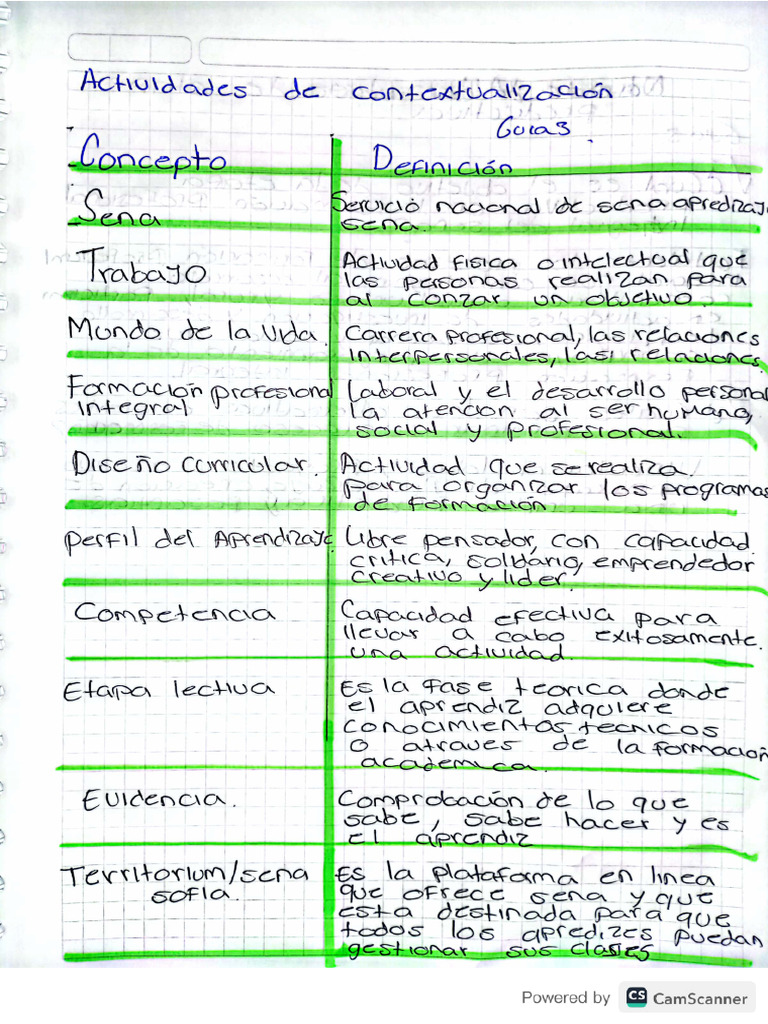 Actividades de contextualización
Guia3.
Concepto Definición
Sena Servicio nacional de sena apredizaje
sena.
Trabajo Actividad fisica o intelectual que
las personas realizan para
al conzar un objetivo.
Mundo de la vida. Carrera profesional, las relaciones
interpersonales, las relaciones.
Formación profesional laboral y el desarrollo personal
integral la atencion al ser humano,
social y profesional.
Diseño curricular. Actividad que se realiza
para organizar los programas
de formación
perfil del Aprendizaje Libre pensador, con capacidad
critica, solidario, emprendedor
creativo y lider.
Competencia Capacidad efectiva para
llevar a cabo exitosamente.
una actividad.
Etapa lectiva Es la fase teorica donde
el aprendiz adquiere
conocimientos tecnicos
o atraves de la formación
academica.
Evidencia. Comprobación de lo que
sabe, sabe hacer y es
el aprendiz
Territorium/sena Es la plataforma en linea
sofia. que ofrece sena y que
esta destinada para que
todos los apredizes puedan
gestionar sus clases
Powered by CS CamScanner